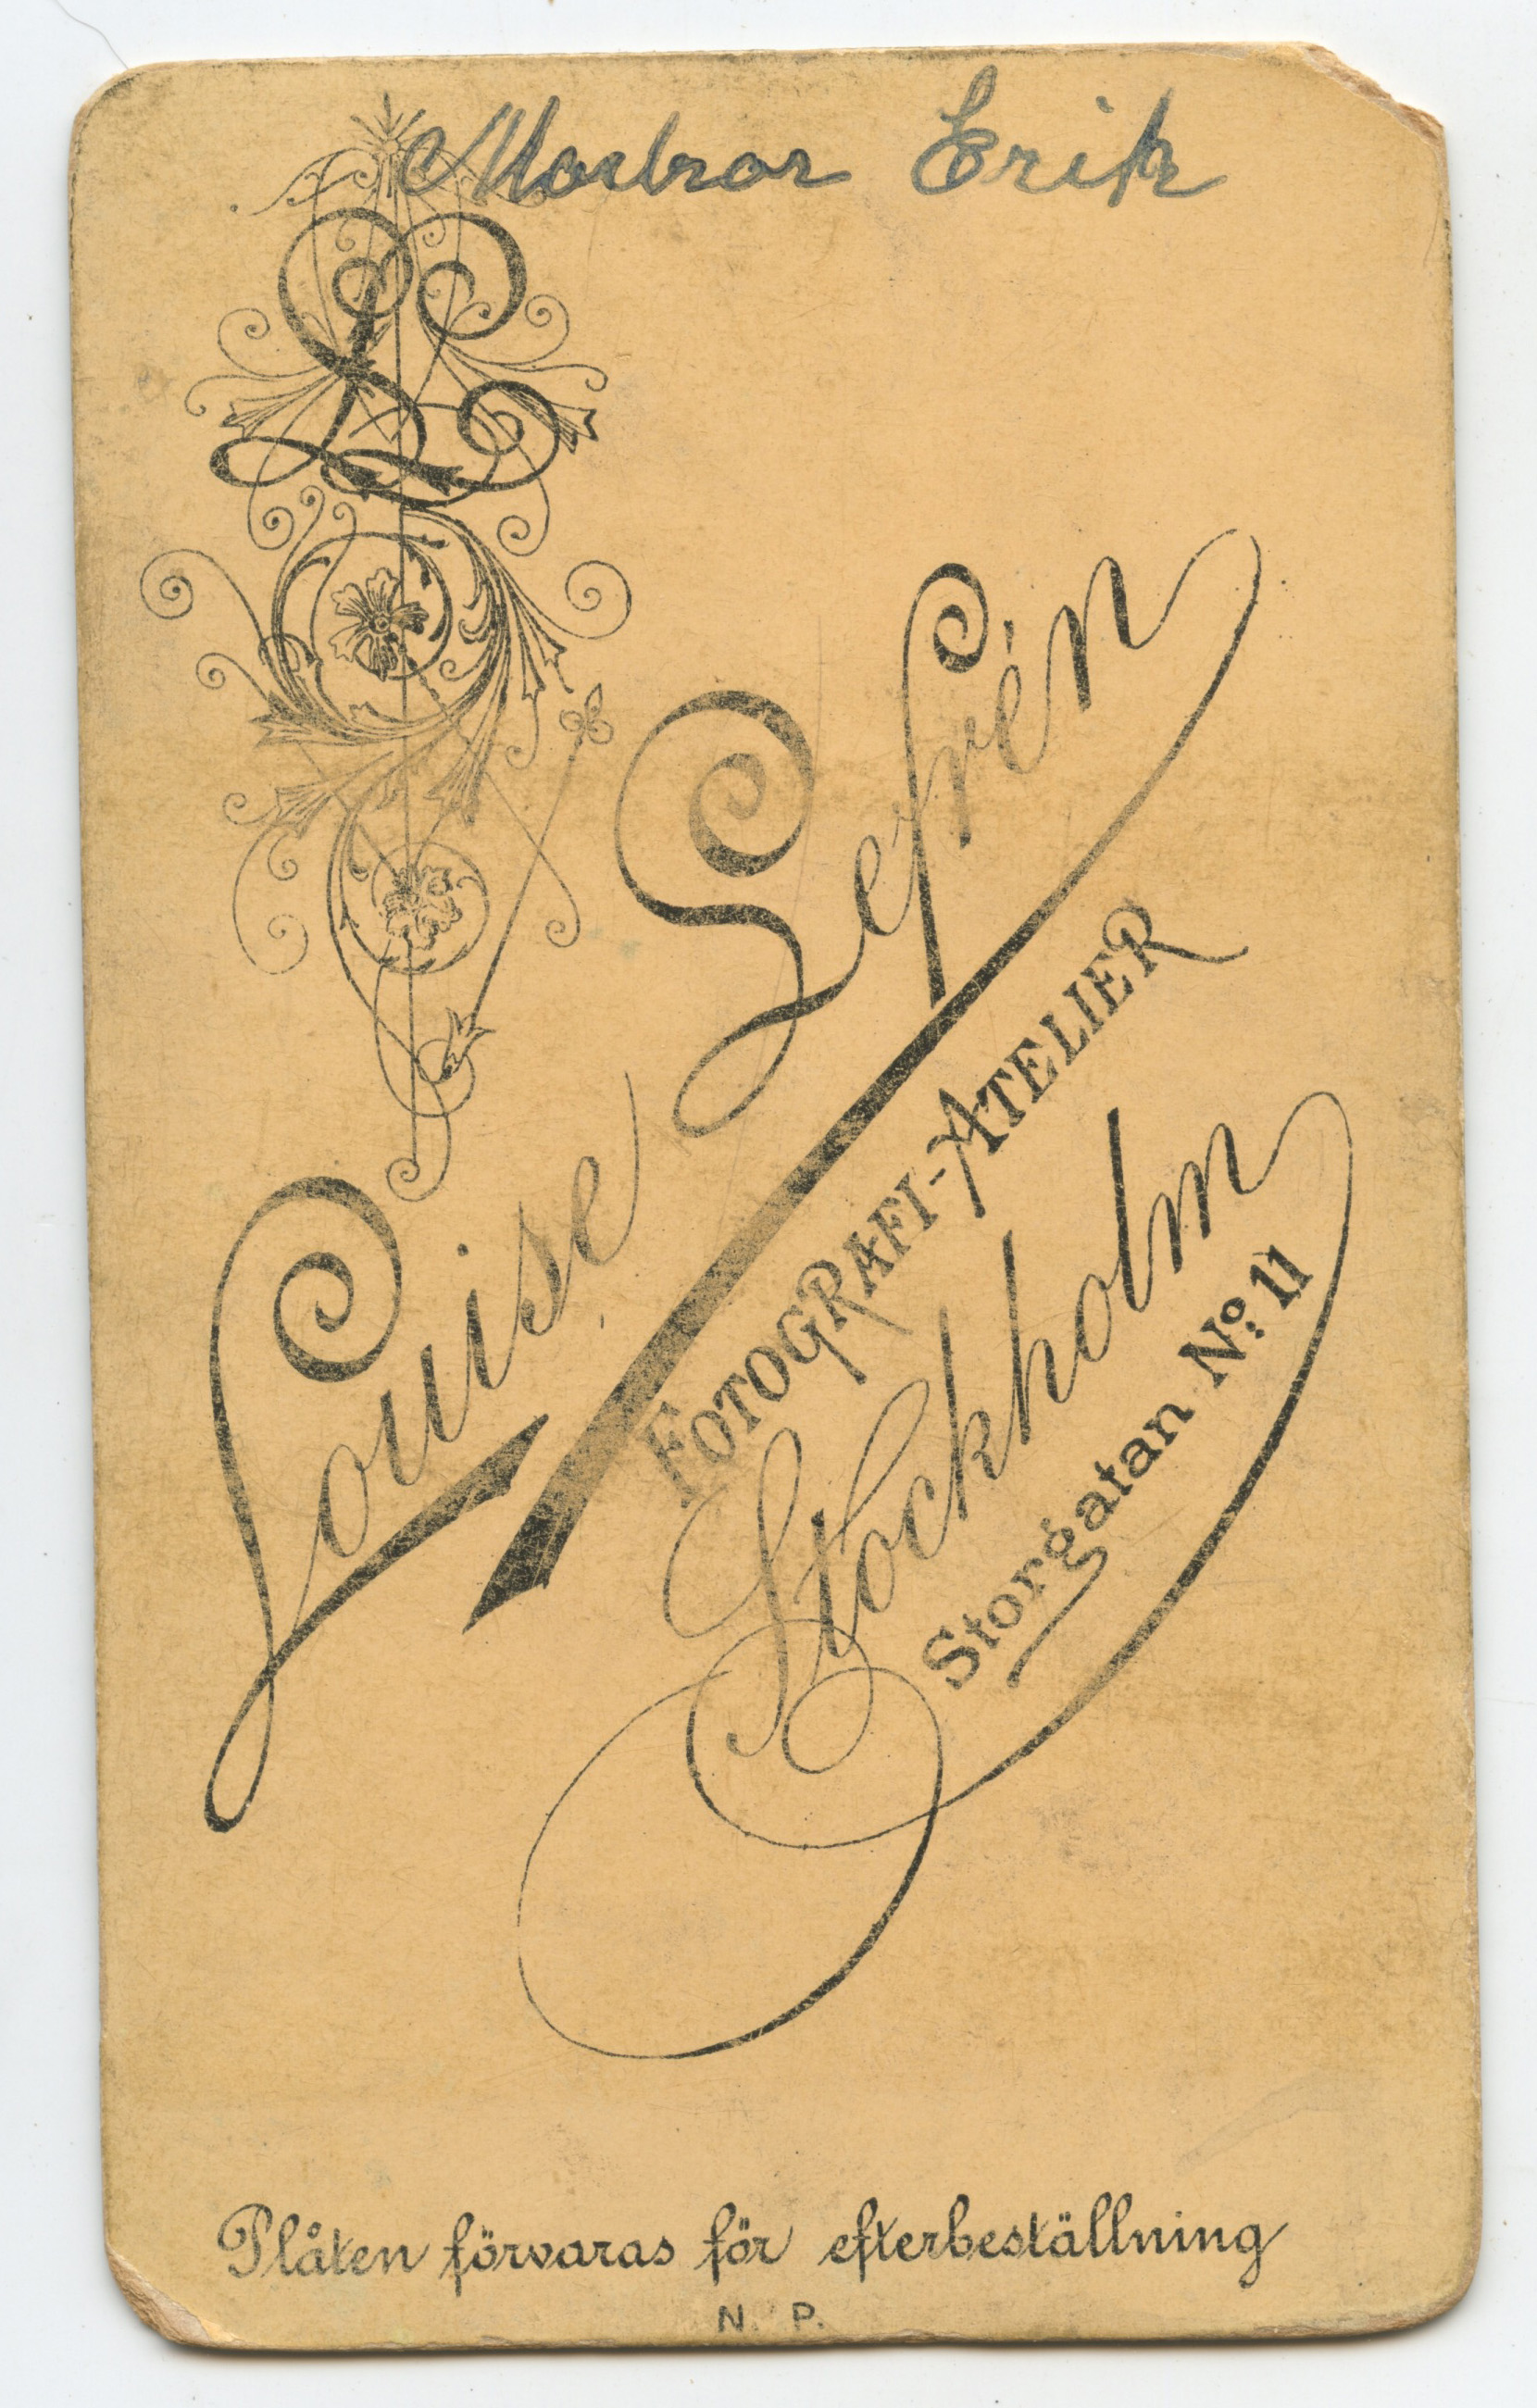 Morbror Erik
LL
Louise Lefrén
FOTOGRAFI-ATELIER
Stockholm
Storgatan No. 11
Plåten förvaras för efterbeställning
N. P.